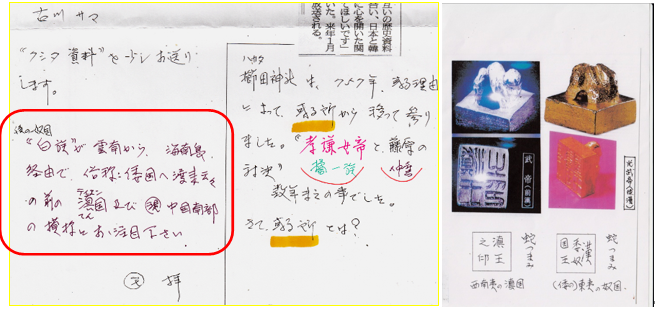 古川 サマ
"クシダ資料"を少しお送り
します。
後の奴国
"白族"が雲南から、海南島
経由で、俗称:倭国へ渡来
の前の滇国及び 中国南部
の模様にお注目下さい
拝
互いの歴史資料
合い、日本と韓
に心を開いた関
てほしいです」
いた。来年1月
放送される。
櫛田神社は、757年、或る理由
によって、或る所から移って参り
ました。"孝謙女帝と、藤原の
対決" 橘一族 仲麿
数年まえの事でした。
さて、或る所とは?
武帝(前漢)
光武帝(後漢)
滇王之印
蛇つまみ
漢委奴国王
蛇つまみ
西南夷の滇国
(倭の)東夷の奴国